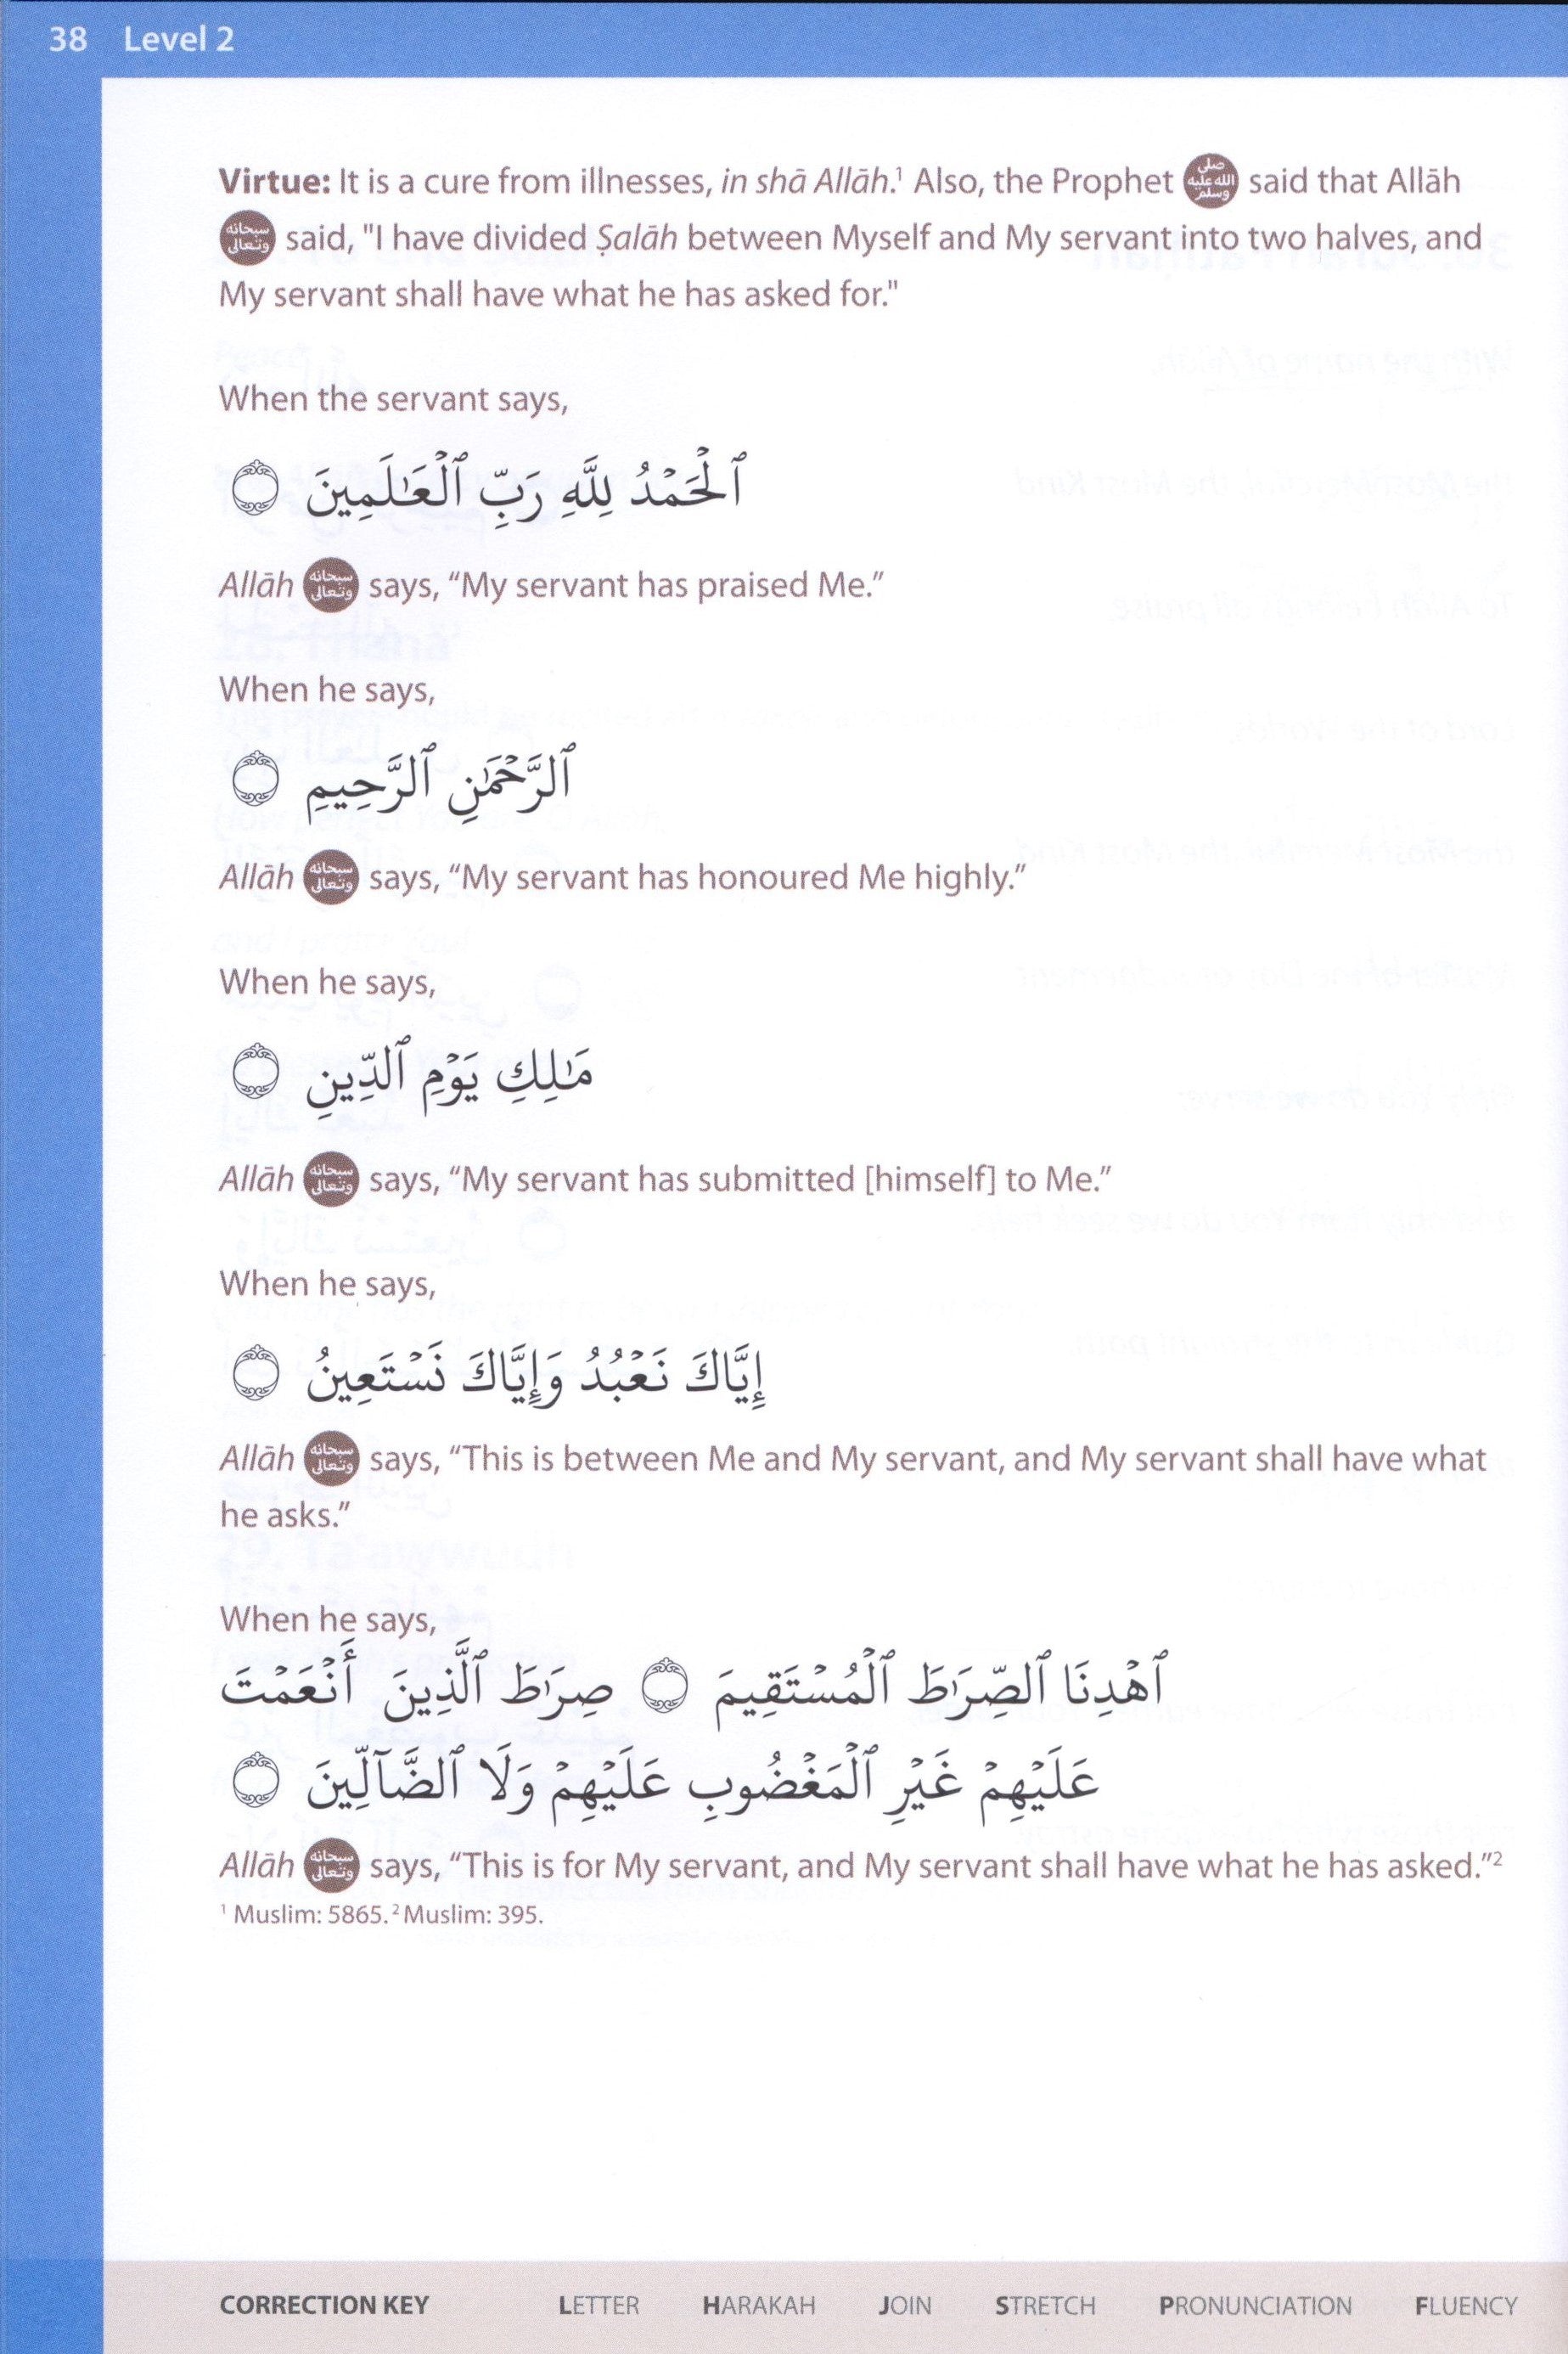 38 Level 2
Virtue: It is a cure from illnesses, in shā Allāh.¹ Also, the Prophet صلى الله عليه وسلم said that Allāh
سبحانه وتعالى said, "I have divided Ṣalāh between Myself and My servant into two halves, and
My servant shall have what he has asked for."
When the servant says,
ٱلْحَمْدُ لِلَّهِ رَبِّ ٱلْعَـٰلَمِينَ
Allāh سبحانه وتعالى says, “My servant has praised Me.”
When he says,
ٱلرَّحْمَـٰنِ ٱلرَّحِيمِ
Allāh سبحانه وتعالى says, “My servant has honoured Me highly.”
When he says,
مَـٰلِكِ يَوْمِ ٱلدِّينِ
Allāh سبحانه وتعالى says, “My servant has submitted [himself] to Me.”
When he says,
إِيَّاكَ نَعْبُدُ وَإِيَّاكَ نَسْتَعِينُ
Allāh سبحانه وتعالى says, “This is between Me and My servant, and My servant shall have what
he asks.”
When he says,
ٱهْدِنَا ٱلصِّرَٰطَ ٱلْمُسْتَقِيمَ صِرَٰطَ ٱلَّذِينَ أَنْعَمْتَ
عَلَيْهِمْ غَيْرِ ٱلْمَغْضُوبِ عَلَيْهِمْ وَلَا ٱلضَّآلِّينَ
Allāh سبحانه وتعالى says, “This is for My servant, and My servant shall have what he has asked.”²
¹ Muslim: 5865. ² Muslim: 395.
CORRECTION KEY LETTER HARAKAH JOIN STRETCH PRONUNCIATION FLUENCY